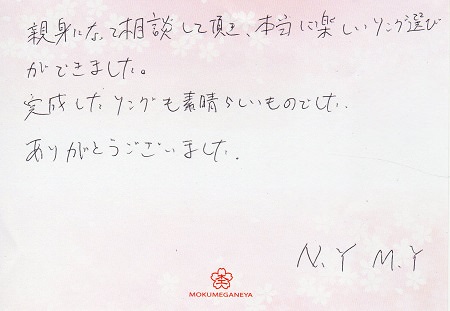 親身になって相談して頂き、本当に楽しいリング選び
ができました。
完成したリングも素晴らしいものでした。
ありがとうございました。
N.Y M.Y
MOKUMEGANEYA